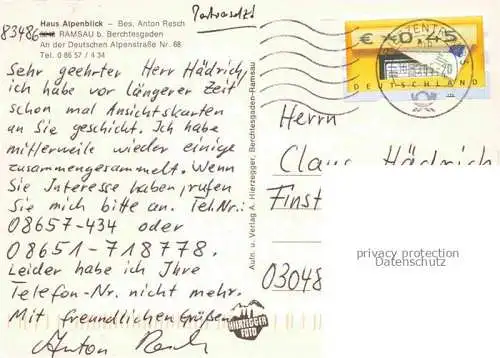 Haus Alpenblick – Bes. Anton Resch
83486 RAMSAU b. Berchtesgaden
An der Deutschen Alpenstraße Nr. 68
Tel. 0 86 57 / 4 34
Sehr geehrter Herr Hädrich,
ich habe vor längerer Zeit
schon mal Ansichtskarten
an Sie geschickt. Ich habe
mittlerweile wieder einige
zusammengesammelt. Wenn
Sie Interesse haben, rufen
Sie mich bitte an. Tel.Nr.:
08657-434 oder
08651-718778.
Leider habe ich Ihre
Telefon-Nr. nicht mehr.
Mit freundlichen Grüßen
Anton Resch
Aufn. u. Verlag A. Hierzegger, Berchtesgaden-Ramsau
HIERZEGGER
FOTO
BRIEFZENTRUM
€ 0,45
DEUTSCHLAND
Herrn
Claus Hädrich
Finst
03048
privacy protection
Datenschutz